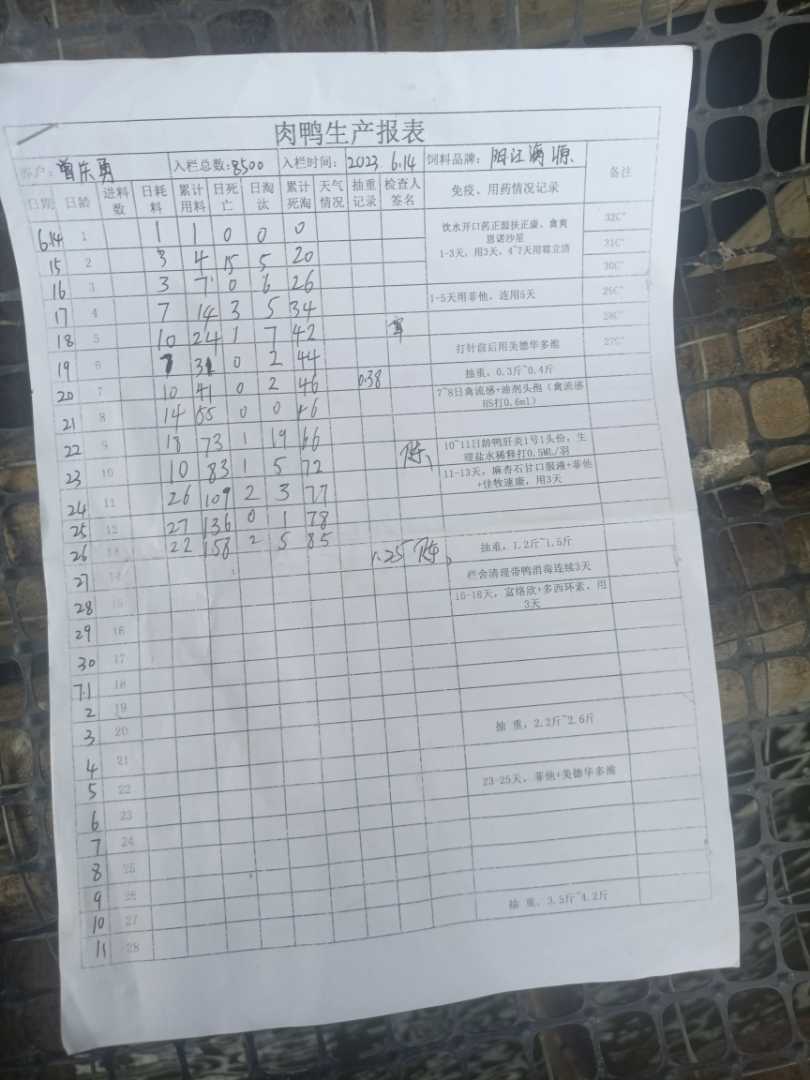 肉鸭生产报表
客户: 曾东勇 入栏总数:8500 入栏时间: 2023 6.14 饲料品牌: 阳江海源 备注
日期 日龄 进料数 日耗料 累计用料 日死亡 日淘汰 累计死淘 天气情况 抽重记录 检查人签名 免疫、用药情况记录
6.14 1 1 1 0 0 0 饮水开口药正源扶正康、禽爽 恩诺沙星 32C°
15 2 3 4 15 5 20 1-3天,用3天,4~7天用霉立清 31C°
16 3 3 7 0 6 26 30C°
17 4 7 14 3 5 34 1-5天用菲他,连用5天 29C°
18 5 10 24 1 7 42 28C°
19 6 7 31 0 2 44 打针前后用美德华多维 27C°
20 7 10 41 0 2 46 0.38 抽重,0.3斤~0.4斤
21 8 14 55 0 0 46 7~8日禽流感+油剂头孢(禽流感HS打0.6ml)
22 9 18 73 1 19 66
23 10 10 83 1 5 72 陈 10~11日龄鸭肝炎1号1头份,生理盐水稀释打0.5ML/羽
24 11 26 109 2 3 77 11-13天,麻杏石甘口服液+菲他+佳牧速康,用3天
25 12 27 136 0 1 78
26 13 22 158 2 5 85 1.25 陈 抽重,1.2斤~1.5斤
27 14 栏舍清理带鸭消毒连续3天
28 15 16-18天,富络欣+多西环素,用3天
29 16
30 17
7.1 18
2 19
3 20 抽 重,2.2斤~2.6斤
4 21
5 22 23-25天,菲他+美德华多维
6 23
7 24
8 25
9 26
10 27 抽 重,3.5斤~4.2斤
11 28